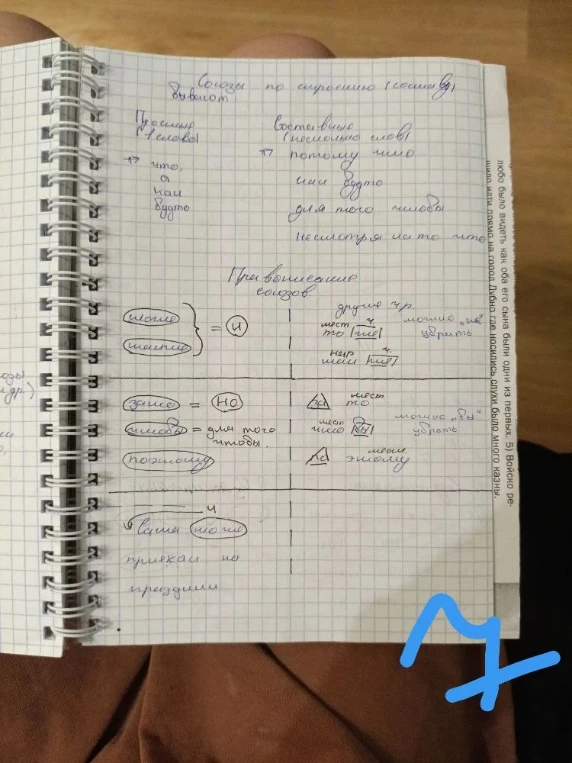 Союзы по строению (составу)
бывают
Простые
(1 слово)
что,
а
или
будто
Составные
(несколько слов)
потому что
как будто
для того чтобы
несмотря на то что
Правописание
союзов
тоже
также
} = и
другие ч.р.
мест ч
то же
нар ч
так же
можно "же"
убрать
зато = но
чтобы = для того
чтобы.
поэтому
мест
за то
мест
что бы
мест
по этому
можно "бы"
убрать
и
Ваня тоже
приехал на
праздник
любо было видеть как оба его сына были одни из первых. 5) Войско ре-
шило идти прямо на город Дубно где носились слухи было много казны.